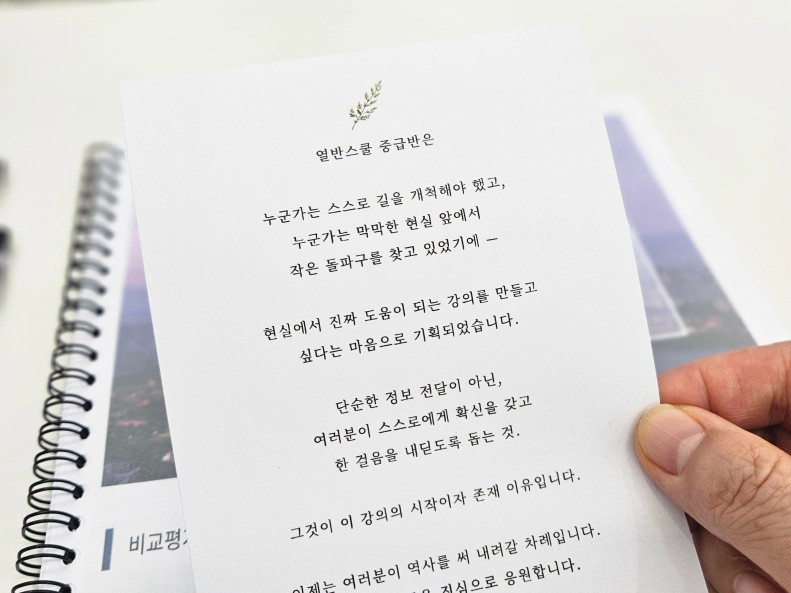 열반스쿨 중급반은
누군가는 스스로 길을 개척해야 했고,
누군가는 막막한 현실 앞에서
작은 돌파구를 찾고 있었기에 –
현실에서 진짜 도움이 되는 강의를 만들고
싶다는 마음으로 기획되었습니다.
단순한 정보 전달이 아닌,
여러분이 스스로에게 확신을 갖고
한 걸음을 내딛도록 돕는 것.
그것이 이 강의의 시작이자 존재 이유입니다.
이제는 여러분이 역사를 써 내려갈 차례입니다.
진심으로 응원합니다.
비교평가